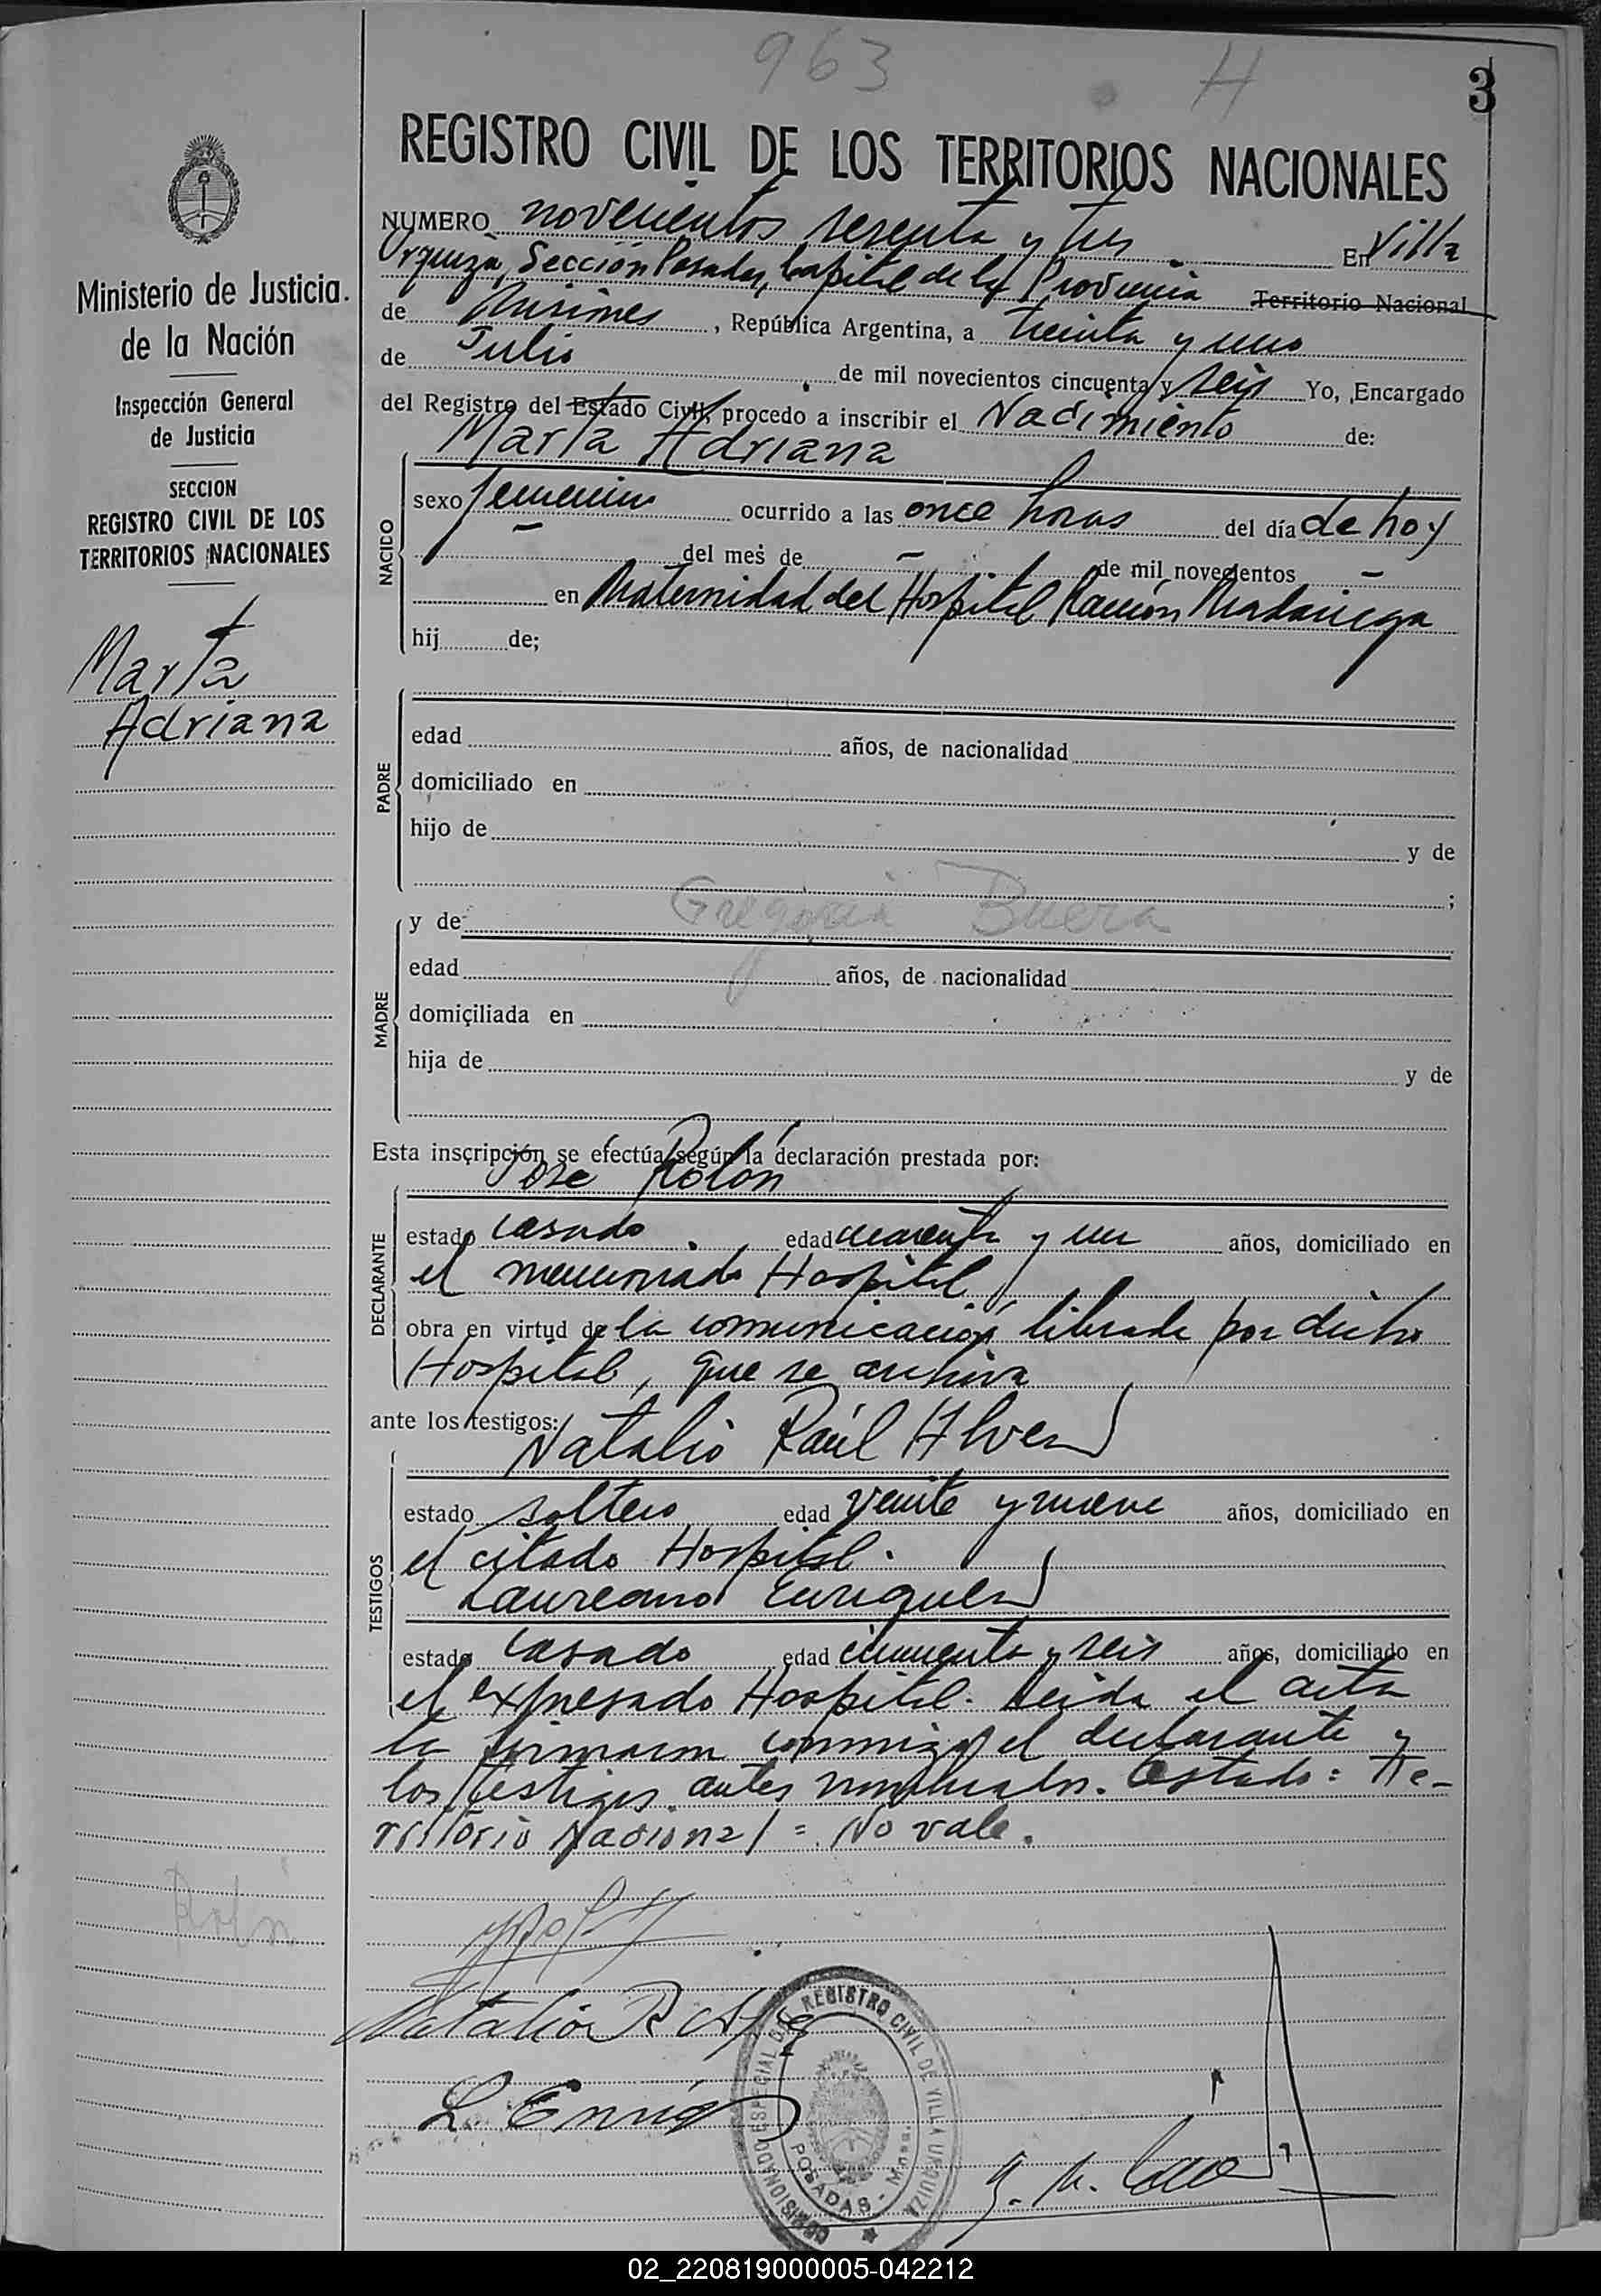 963 H
3
REGISTRO CIVIL DE LOS TERRITORIOS NACIONALES
Ministerio de Justicia.
de la Nación
Inspección General
de Justicia
SECCION
REGISTRO CIVIL DE LOS
TERRITORIOS NACIONALES
Marta
Adriana
Rolón
NUMERO novecientos sesenta y tres En Villa
Urquiza, Sección Posadas, Capital de la Provincia Territorio Nacional
de Misiones, República Argentina, a treinta y uno
de Julio de mil novecientos cincuenta y seis Yo, Encargado
del Registro del Estado Civil, procedo a inscribir el Nacimiento de:
Marta Adriana
NACIDO
sexo femenino ocurrido a las once horas del día de hoy
— del mes de — de mil novecientos —
en Maternidad del Hospital Ramón Madariaga
hij de;
PADRE
edad años, de nacionalidad
domiciliado en
hijo de y de
;
MADRE
y de Gregoria Buera
edad años, de nacionalidad
domiciliada en
hija de y de
Esta inscripción se efectúa según la declaración prestada por:
José Rolón
DECLARANTE
estado casado edad cuarenta y un años, domiciliado en
el mencionado Hospital,
obra en virtud de la comunicación librada por dicho
Hospital, que se archiva
ante los testigos:
Natalio Raúl Alvez
TESTIGOS
estado soltero edad veinte y nueve años, domiciliado en
el citado Hospital.
Laureano Enriquez
estado casado edad cincuenta y seis años, domiciliado en
el expresado Hospital. Leída el acta
la firmaron conmigo el declarante y
los testigos antes nombrados. Testado: Te-
rritorio Nacional = No vale.
Natalio R
L Enriq
COMISIONADO ESPECIAL DEL REGISTRO CIVIL DE VILLA URQUIZA
POSADAS - Mnes.
02_220819000005-042212